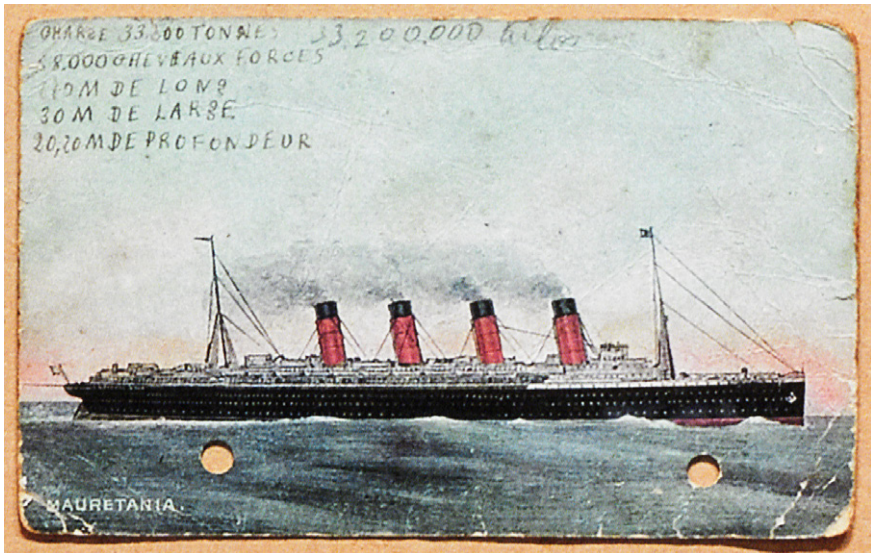 CHARGE 33.200 TONNES 33.200.000 kilos
68.000 CHEVEAUX FORCES
DE LONG
30 M DE LARGE
20,20 M DE PROFONDEUR
MAURETANIA.